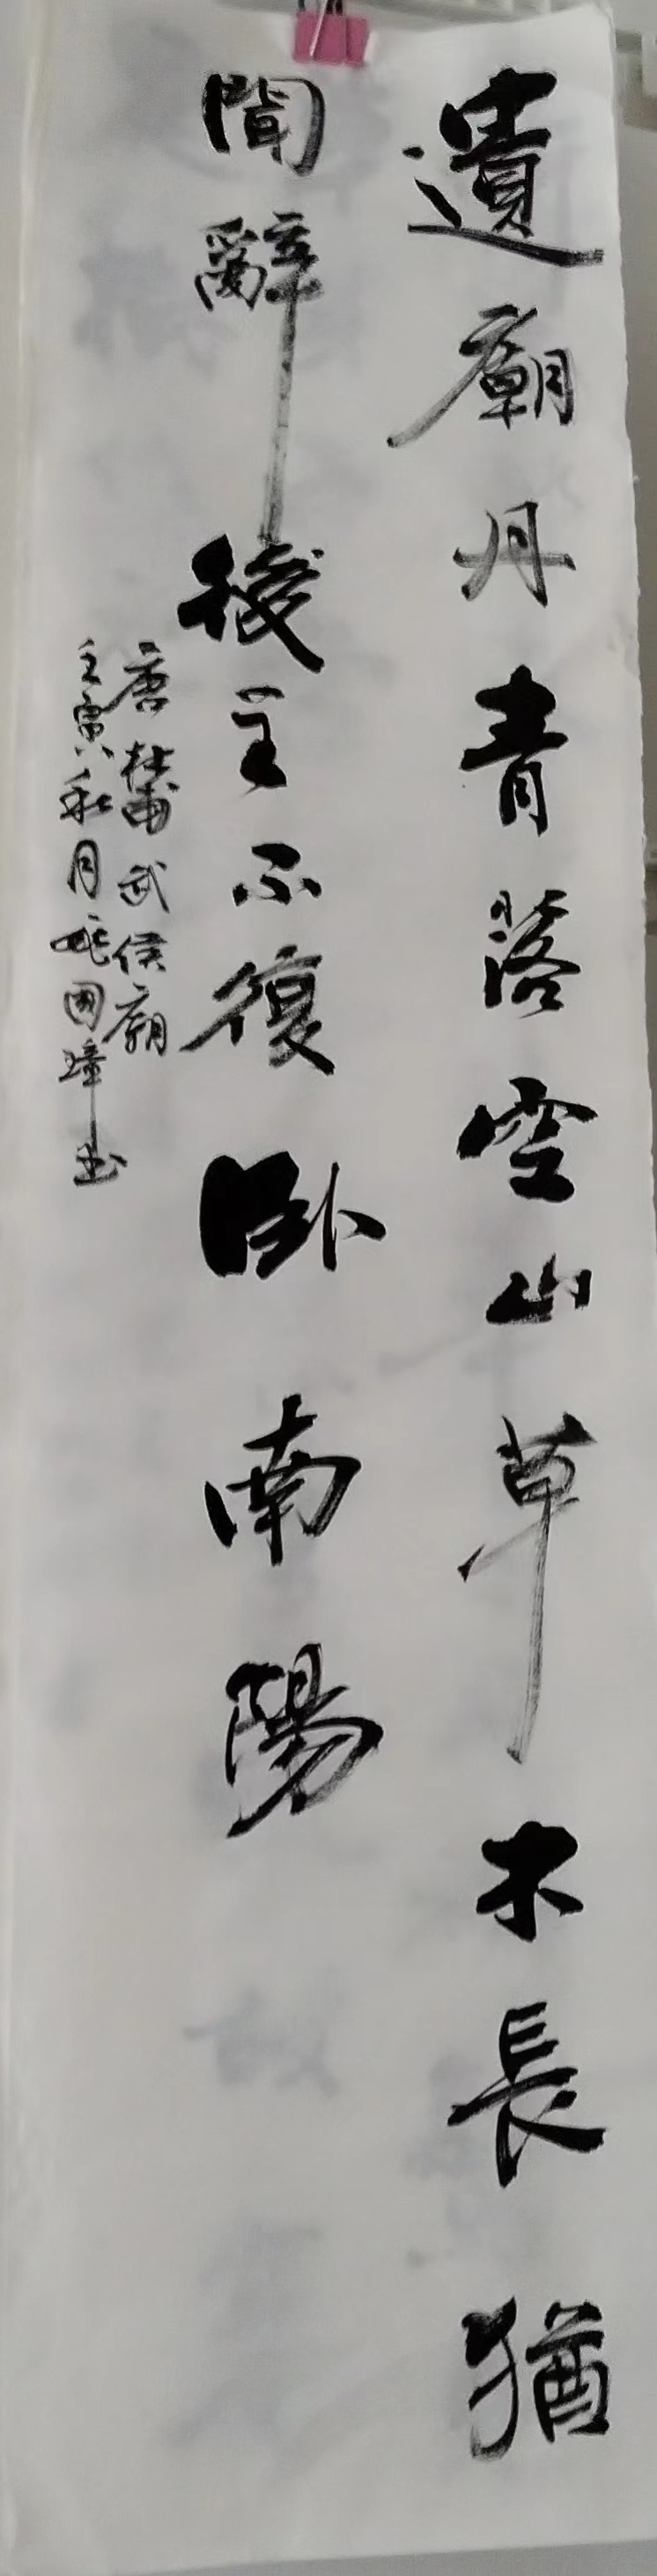 遺廟丹青落空山草木長猶
聞辭後主不復卧南陽
唐杜甫武侯廟
壬寅秋月 國璋书